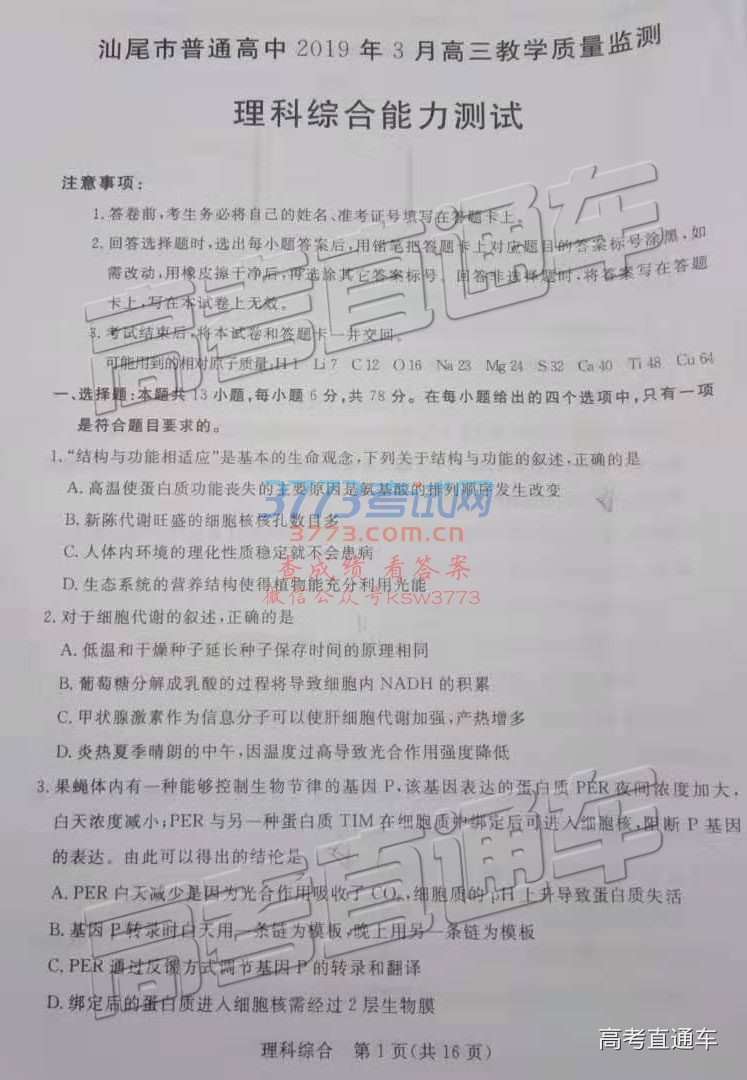 汕尾市普通高中 2019 年 3 月高三教学质量监测
理科综合能力测试
注意事项：
1. 答卷前,考生务必将自己的姓名、准考证号填写在答题卡上。
2. 回答选择题时,选出每小题答案后,用铅笔把答题卡上对应题目的答案标号涂黑,如
需改动,用橡皮擦干净后,再选涂其它答案标号。回答非选择题时,将答案写在答题
卡上,写在本试卷上无效。
3. 考试结束后,将本试卷和答题卡一并交回。
可能用到的相对原子质量:H 1 Li 7 C 12 O 16 Na 23 Mg 24 S 32 Ca 40 Ti 48 Cu 64
一、选择题:本题共 13 小题,每小题 6 分,共 78 分。在每小题给出的四个选项中,只有一项
是符合题目要求的。
1. “结构与功能相适应”是基本的生命观念,下列关于结构与功能的叙述,正确的是
A. 高温使蛋白质功能丧失的主要原因是氨基酸的排列顺序发生改变
B. 新陈代谢旺盛的细胞核核孔数目多
C. 人体内环境的理化性质稳定就不会患病
D. 生态系统的营养结构使得植物能充分利用光能
2. 对于细胞代谢的叙述,正确的是
A. 低温和干燥种子延长种子保存时间的原理相同
B. 葡萄糖分解成乳酸的过程将导致细胞内 NADH 的积累
C. 甲状腺激素作为信息分子可以使肝细胞代谢加强,产热增多
D. 炎热夏季晴朗的中午,因温度过高导致光合作用强度降低
3. 果蝇体内有一种能够控制生物节律的基因 P,该基因表达的蛋白质 PER 夜间浓度加大,
白天浓度减小;PER 与另一种蛋白质 TIM 在细胞质中绑定后可进入细胞核,阻断 P 基因
的表达。由此可以得出的结论是
A. PER 白天减少是因为光合作用吸收了 CO₂,细胞质的 pH 上升导致蛋白质失活
B. 基因 P 转录时白天用一条链为模板,晚上用另一条链为模板
C. PER 通过反馈方式调节基因 P 的转录和翻译
D. 绑定后的蛋白质进入细胞核需经过 2 层生物膜
理科综合 第 1 页(共 16 页)
高考直通车
高考直通车
3773考试网
3773.com.cn
查成绩 看答案
微信公众号ksw3773
高考直通车